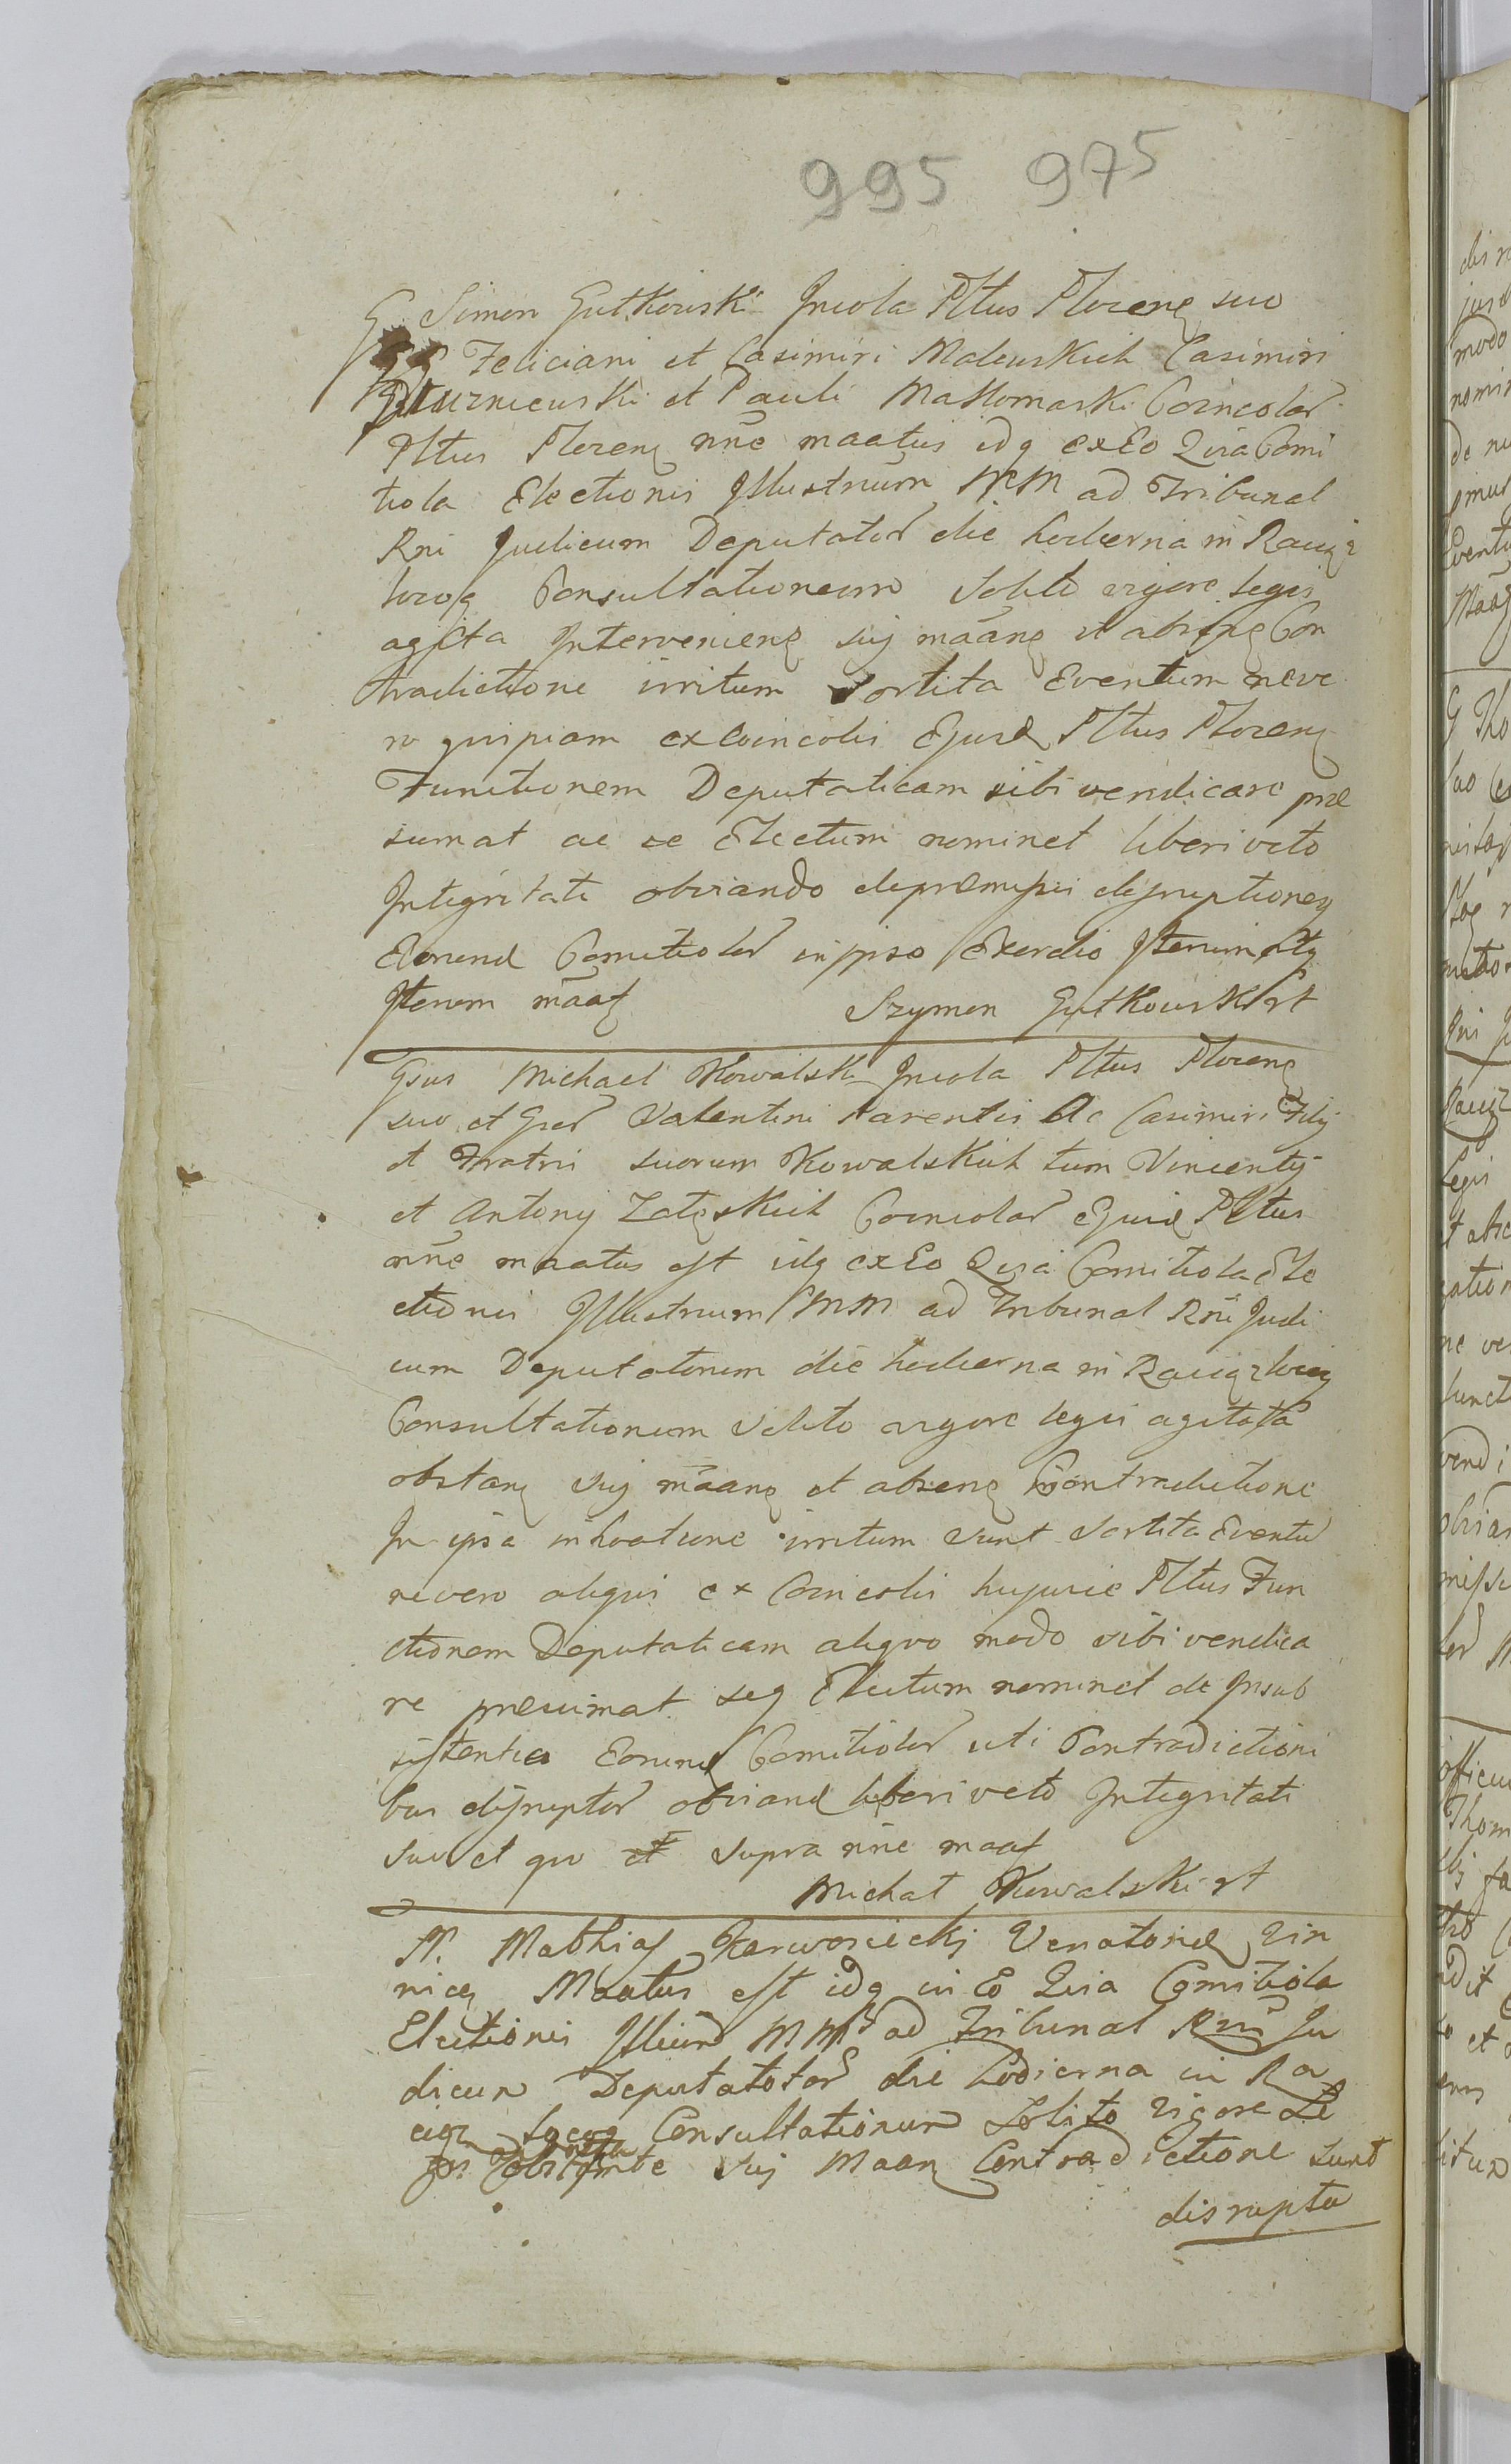 995 975
G. Simon Gutkowski Incola Pltus Plocenq suo
Feliciani et Casimiri Malewskich Casimiri
et Pauli Makomaski Coincolar
Pltus Plocenq nnc maatus idq ex Eo Quia Comi
tiola Electionis Illustrium MM ad Tribunal
Rni Judicum Deputator die hodierna in Raciąz
locoq Consultationum Solito vigore legis
agita Intervenienq suj maanq et absqnq Con
tradictione irritum Sortita Eventum neve
ro quipiam ex Coincolis Ejusd Pltus Plocenq
Functionem Deputaticam sibi vendicare præ
sumat ac se Electum nominet liberi veto
Integritati obviando de præmissis disruptioneq
Eorund Comitiolor in ipso Exordio Iterum atq
Iterum maat Szymon Gutkowski st
Gsus Michael Kowalski Incola Pltus Plocenq
suo et Gsor Valentini Parentis Ac Casimiri Filij
et Fratri suorum Kowalskich tum Vincentij
et Antonij Zaleskich Coincolar Ejusd Pltus
nnc maatus est idq ex Eo Quia Comitiola Ele
ctionis Illustrium MM ad Tribunal Rni Judi
cum Deputatorum die hodierna in Raciąz locoq
Consultationum Solito vigore legis agitata
obstanq suj maanq et absenq Contradictione
In ipsa inhoatione irritum sunt Sortita Eventu
ne vero aliquis ex Coincolis hujusce Pltus Fun
ctionem Deputaticam aliquo modo sibi vendica
re præsumat seq Electum nominet de Insub
sistentia Eorund Comitiolor uti Contradictioni
bus disruptor obviand liberi veto Integritati
suo et quo et supra nnc maat
Michał Kowalski st
M. Mathias Karwosiecki Venatorid Vin
nicen Maatus est idq in Eo Quia Comitiola
Electionis Illium MM ad Tribunal Rni Ju
dicum Deputatotor die hodierna in Ra
ciąz locoq Consultationum Solito Vigore Le
gis suj Maanq Contradictione sunt
disrupta